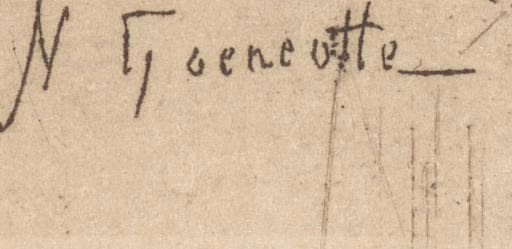 N Goeneotte